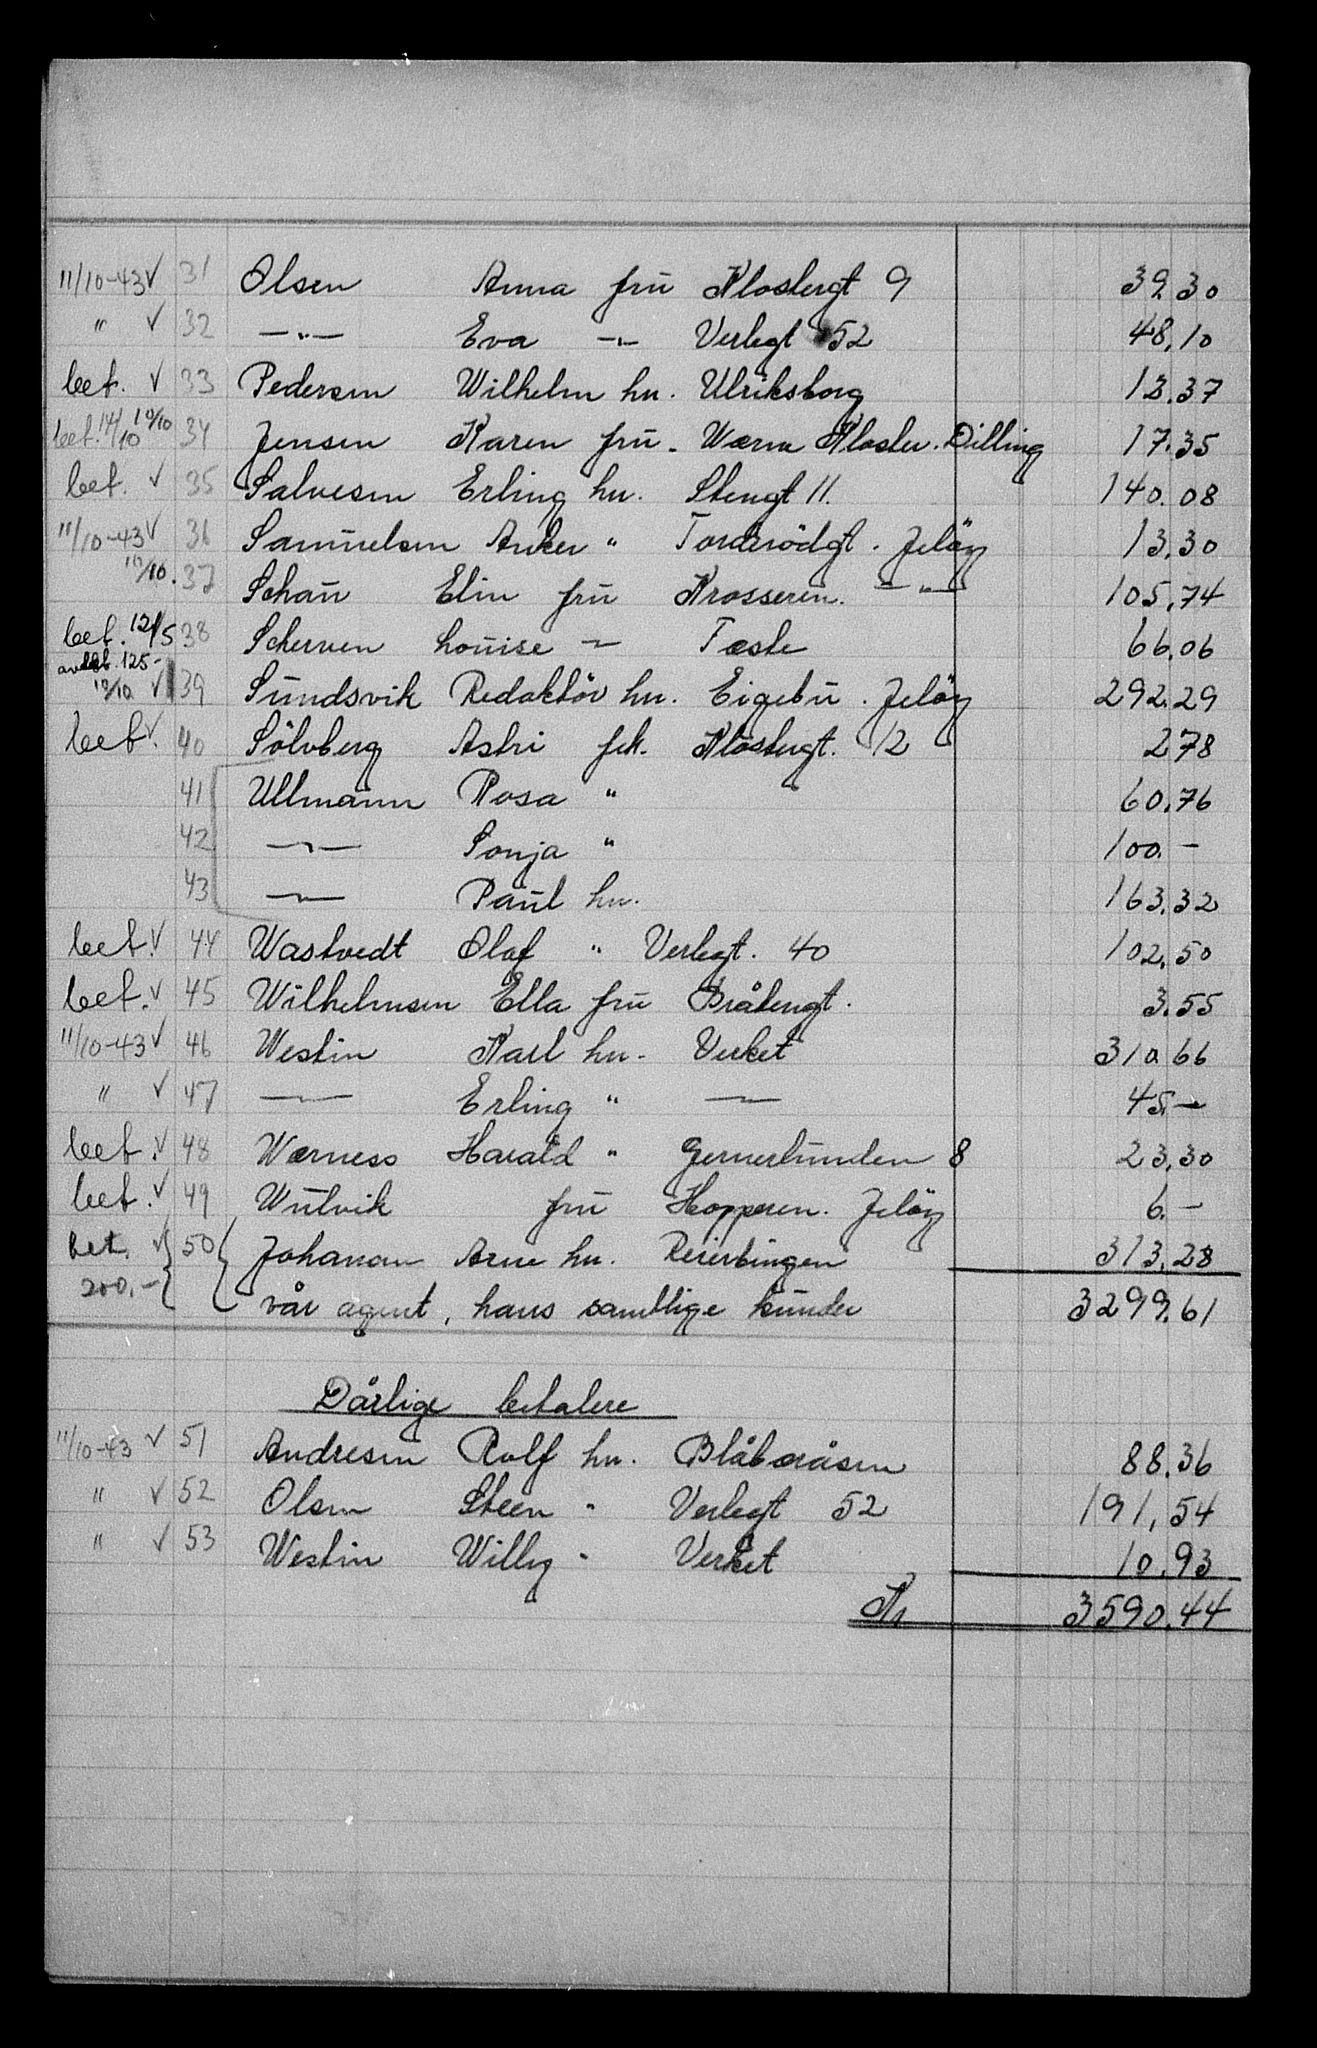 11/10-43 √ 31 Olsen Anna frü Klostergt 9 39.30
" √ 32 —"— Eva —"— Verlegt 52 48.10
bet. √ 33 Pedersen Wilhelm hr. Ulriksborg 13.37
bet. 14/10 12/10 34 Jensen Karen frü. Værne Kloster. Dilling 17.35
bet. √ 35 Salvesen Erling hr. Stengt 11. 140.08
11/10-43 √ 36 Samüelsen Anker " Tordersödgt. Jelöy 13.30
12/10. 37 Schaü Elin frü Krosseren. —"— 105.74
bet. 12/5 38 Scherven Loüise —"— Tæste 66.06
avdgb. 125- 12/10 √ 39 Sündsvik Redaktör hr. Eigebü. Jelöy 292.29
bet √. 40 Sölvberg Astri frk. Klostergt. 12 278
41 Ullmann Rosa " 60.76
42 —"— Sonja " 100.-
43 —"— Paül hr. 163.32
bet. √ 44 Wastvedt Olaf " Verlegt. 40 102.50
bet. √ 45 Wilhelmsen Ella frü Bråtengt. 3.55
11/10-43 √ 46 Westin Karl hr. Verket 310.66
" √ 47 —"— Erling " —"— 45.-
bet. √ 48 Wærness Harald " Gernerlünden 8 23.30
bet. √ 49 Wülvik frü Hopperen. Jelöy 6.-
bet. √ 50 Johansen Arne hr. Reierbingen 313.28
200.- vår agent, hans samtlige künder 3299.61
Dårlige betalere
11/10-43 √ 51 Andresen Rolf hr. Blåbæråsen 88.36
" √ 52 Olsen Steen " Verlegt 52 191.54
" √ 53 Westin Willy " Verket 10.93
Kr 3590.44